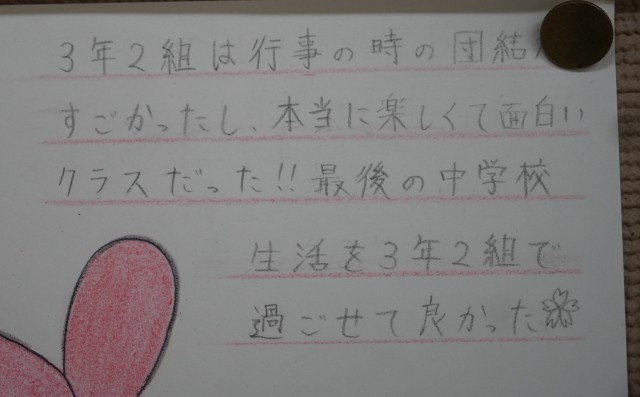 3年2組は行事の時の団結
すごかったし、本当に楽しくて面白い
クラスだった!!最後の中学校
生活を3年2組で
過ごせて良かった